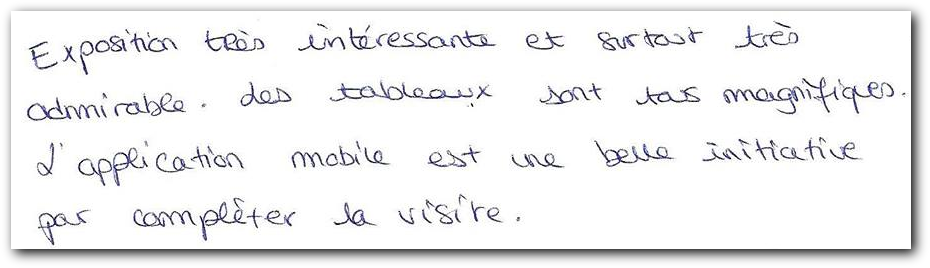 Exposition très intéressante et surtout très
admirable. Les tableaux sont tas magnifiques.
L'application mobile est une belle initiative
par complèter la visite.